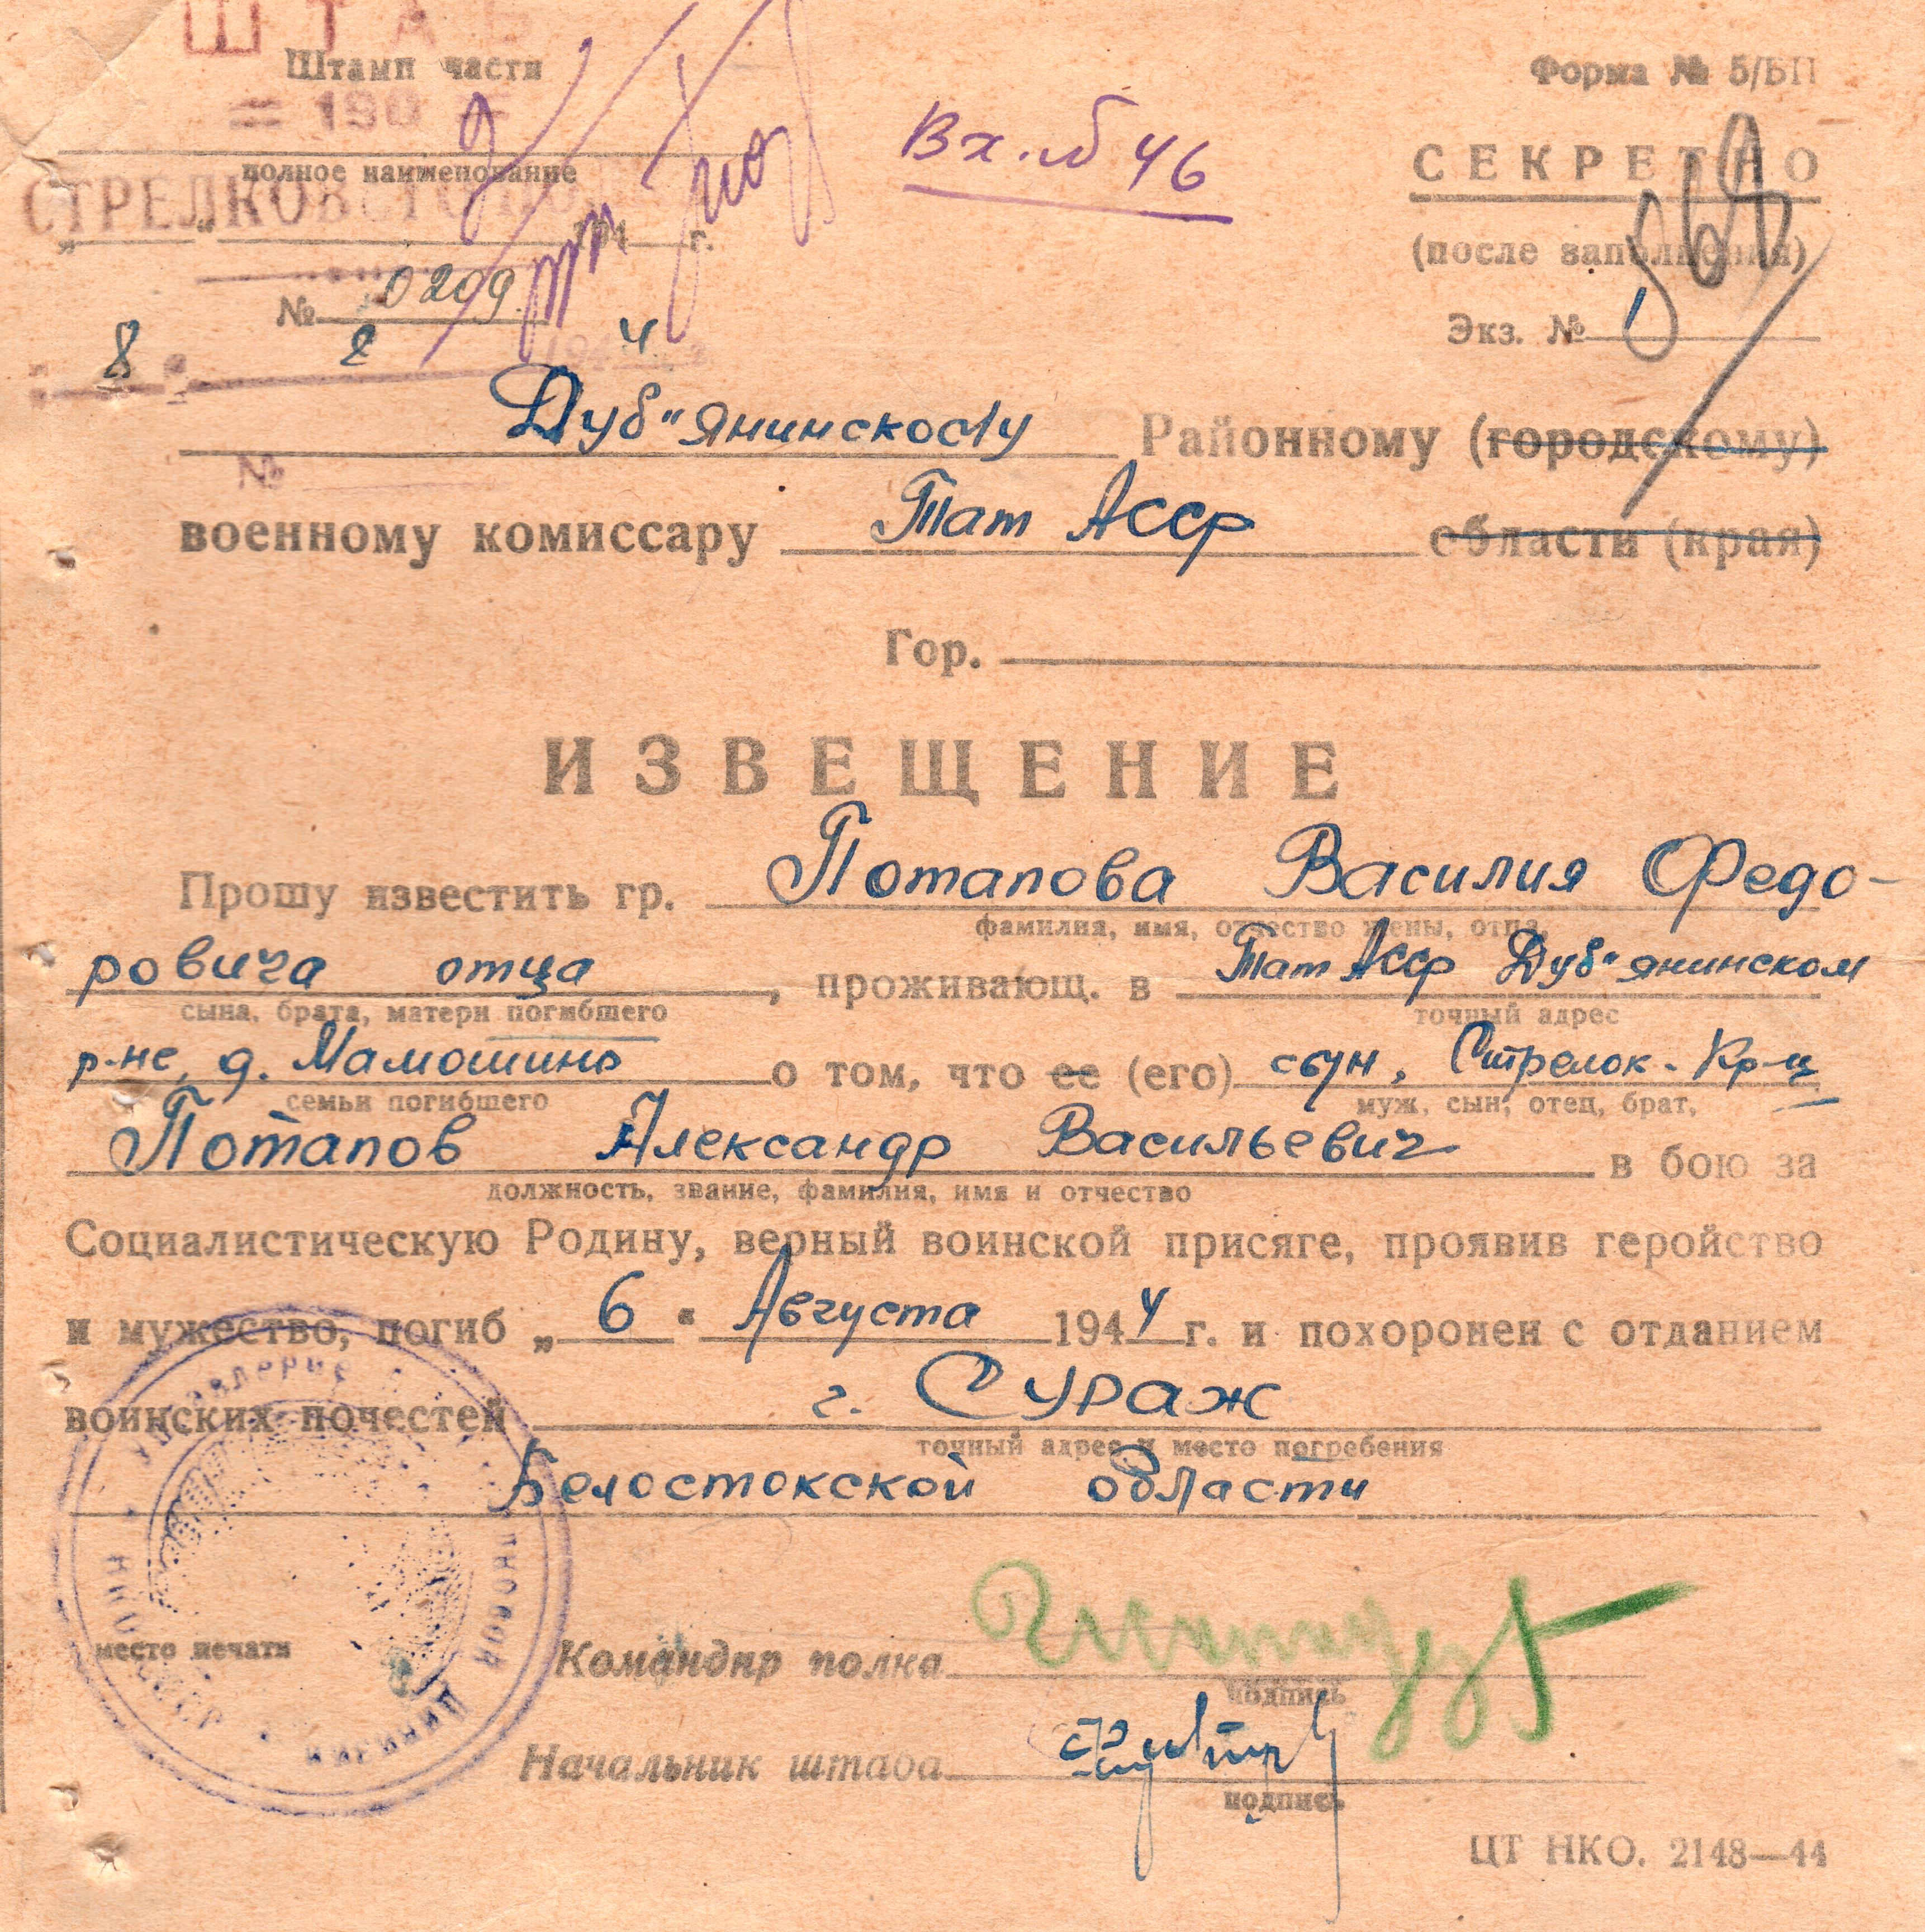 ШТАБ
Штамп части
Форма № 5/БП
= 190 =
Вх. № 46
СЕКРЕТНО
полное наименование
СТРЕЛКОВОГО
„ “ 194 г.
(после заполнения)
№ 0209
Экз. № 1
8 8 1944 г.
Дуб"янинскому Районному (городскому)
№
военному комиссару Тат АССР области (края)
Гор.
ИЗВЕЩЕНИЕ
Прошу известить гр. Потапова Василия Федо-
фамилия, имя, отчество жены, отца,
ровича отца, проживающ. в Тат АССР Дуб"янинском
сына, брата, матери погибшего точный адрес
р-не, д. Мамошино о том, что ее (его) сын, Стрелок-Кр-ц
семьи погибшего муж, сын, отец, брат,
Потапов Александр Васильевич в бою за
должность, звание, фамилия, имя и отчество
Социалистическую Родину, верный воинской присяге, проявив геройство
и мужество, погиб „ 6 “ Августа 1944 г. и похоронен с отданием
воинских почестей г. Сураж
точный адрес и место погребения
Белостокской области
место печати
Командир полка
подпись
Начальник штаба
подпись
ЦТ НКО. 2148—44